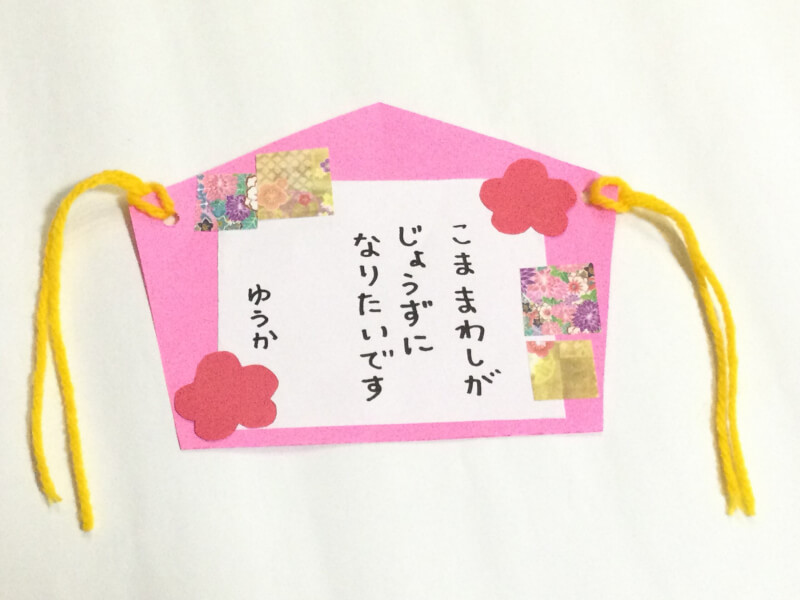 こままわしが
じょうずに
なりたいです
ゆうか